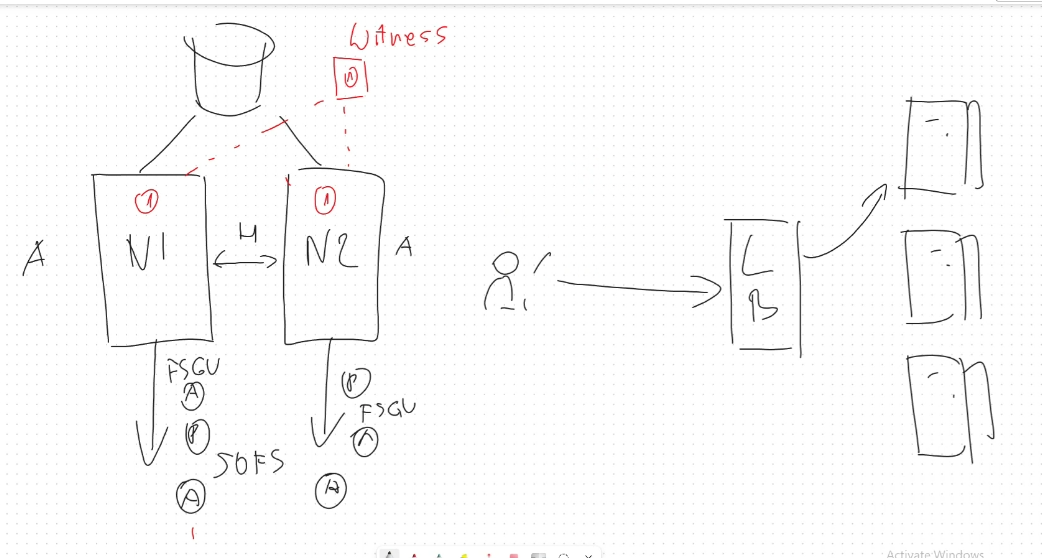 Witness
1
1
1
A
N1
H
N2
A
L
B
FSGU
A
P
SOFS
A
P
FSGU
A
A
Activate Windows